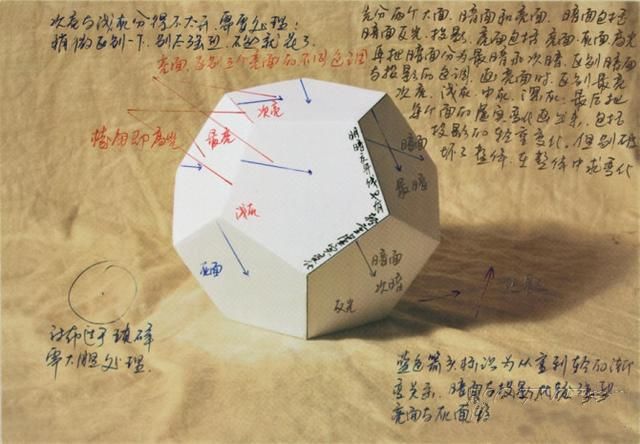 次亮与浅灰分得不太开,需要处理:
稍微区别一下,别太强烈,不然就花了
亮面,区别三个亮面的不同色调
先分两个大面,暗面和亮面,暗面包括
暗面反光,投影,亮面包括亮面,灰面,高光
再把暗面分为最暗和次暗,区别暗面
与投影的色调,画亮面时,区别最亮
次亮,浅灰,中灰,深灰,最后把
每个面的虚实变化画出来,包括
投影的轻重变化,但别破
坏了整体,在整体中求变化
次亮
最亮
棱角即高光
浅灰
明暗交界线
暗面
最暗
灰面
暗面
次暗
反光
投影
衬布过于琐碎
需大胆处理
蓝色箭头标识为从重到轻的渐
变关系,暗面与投影
亮面与灰面